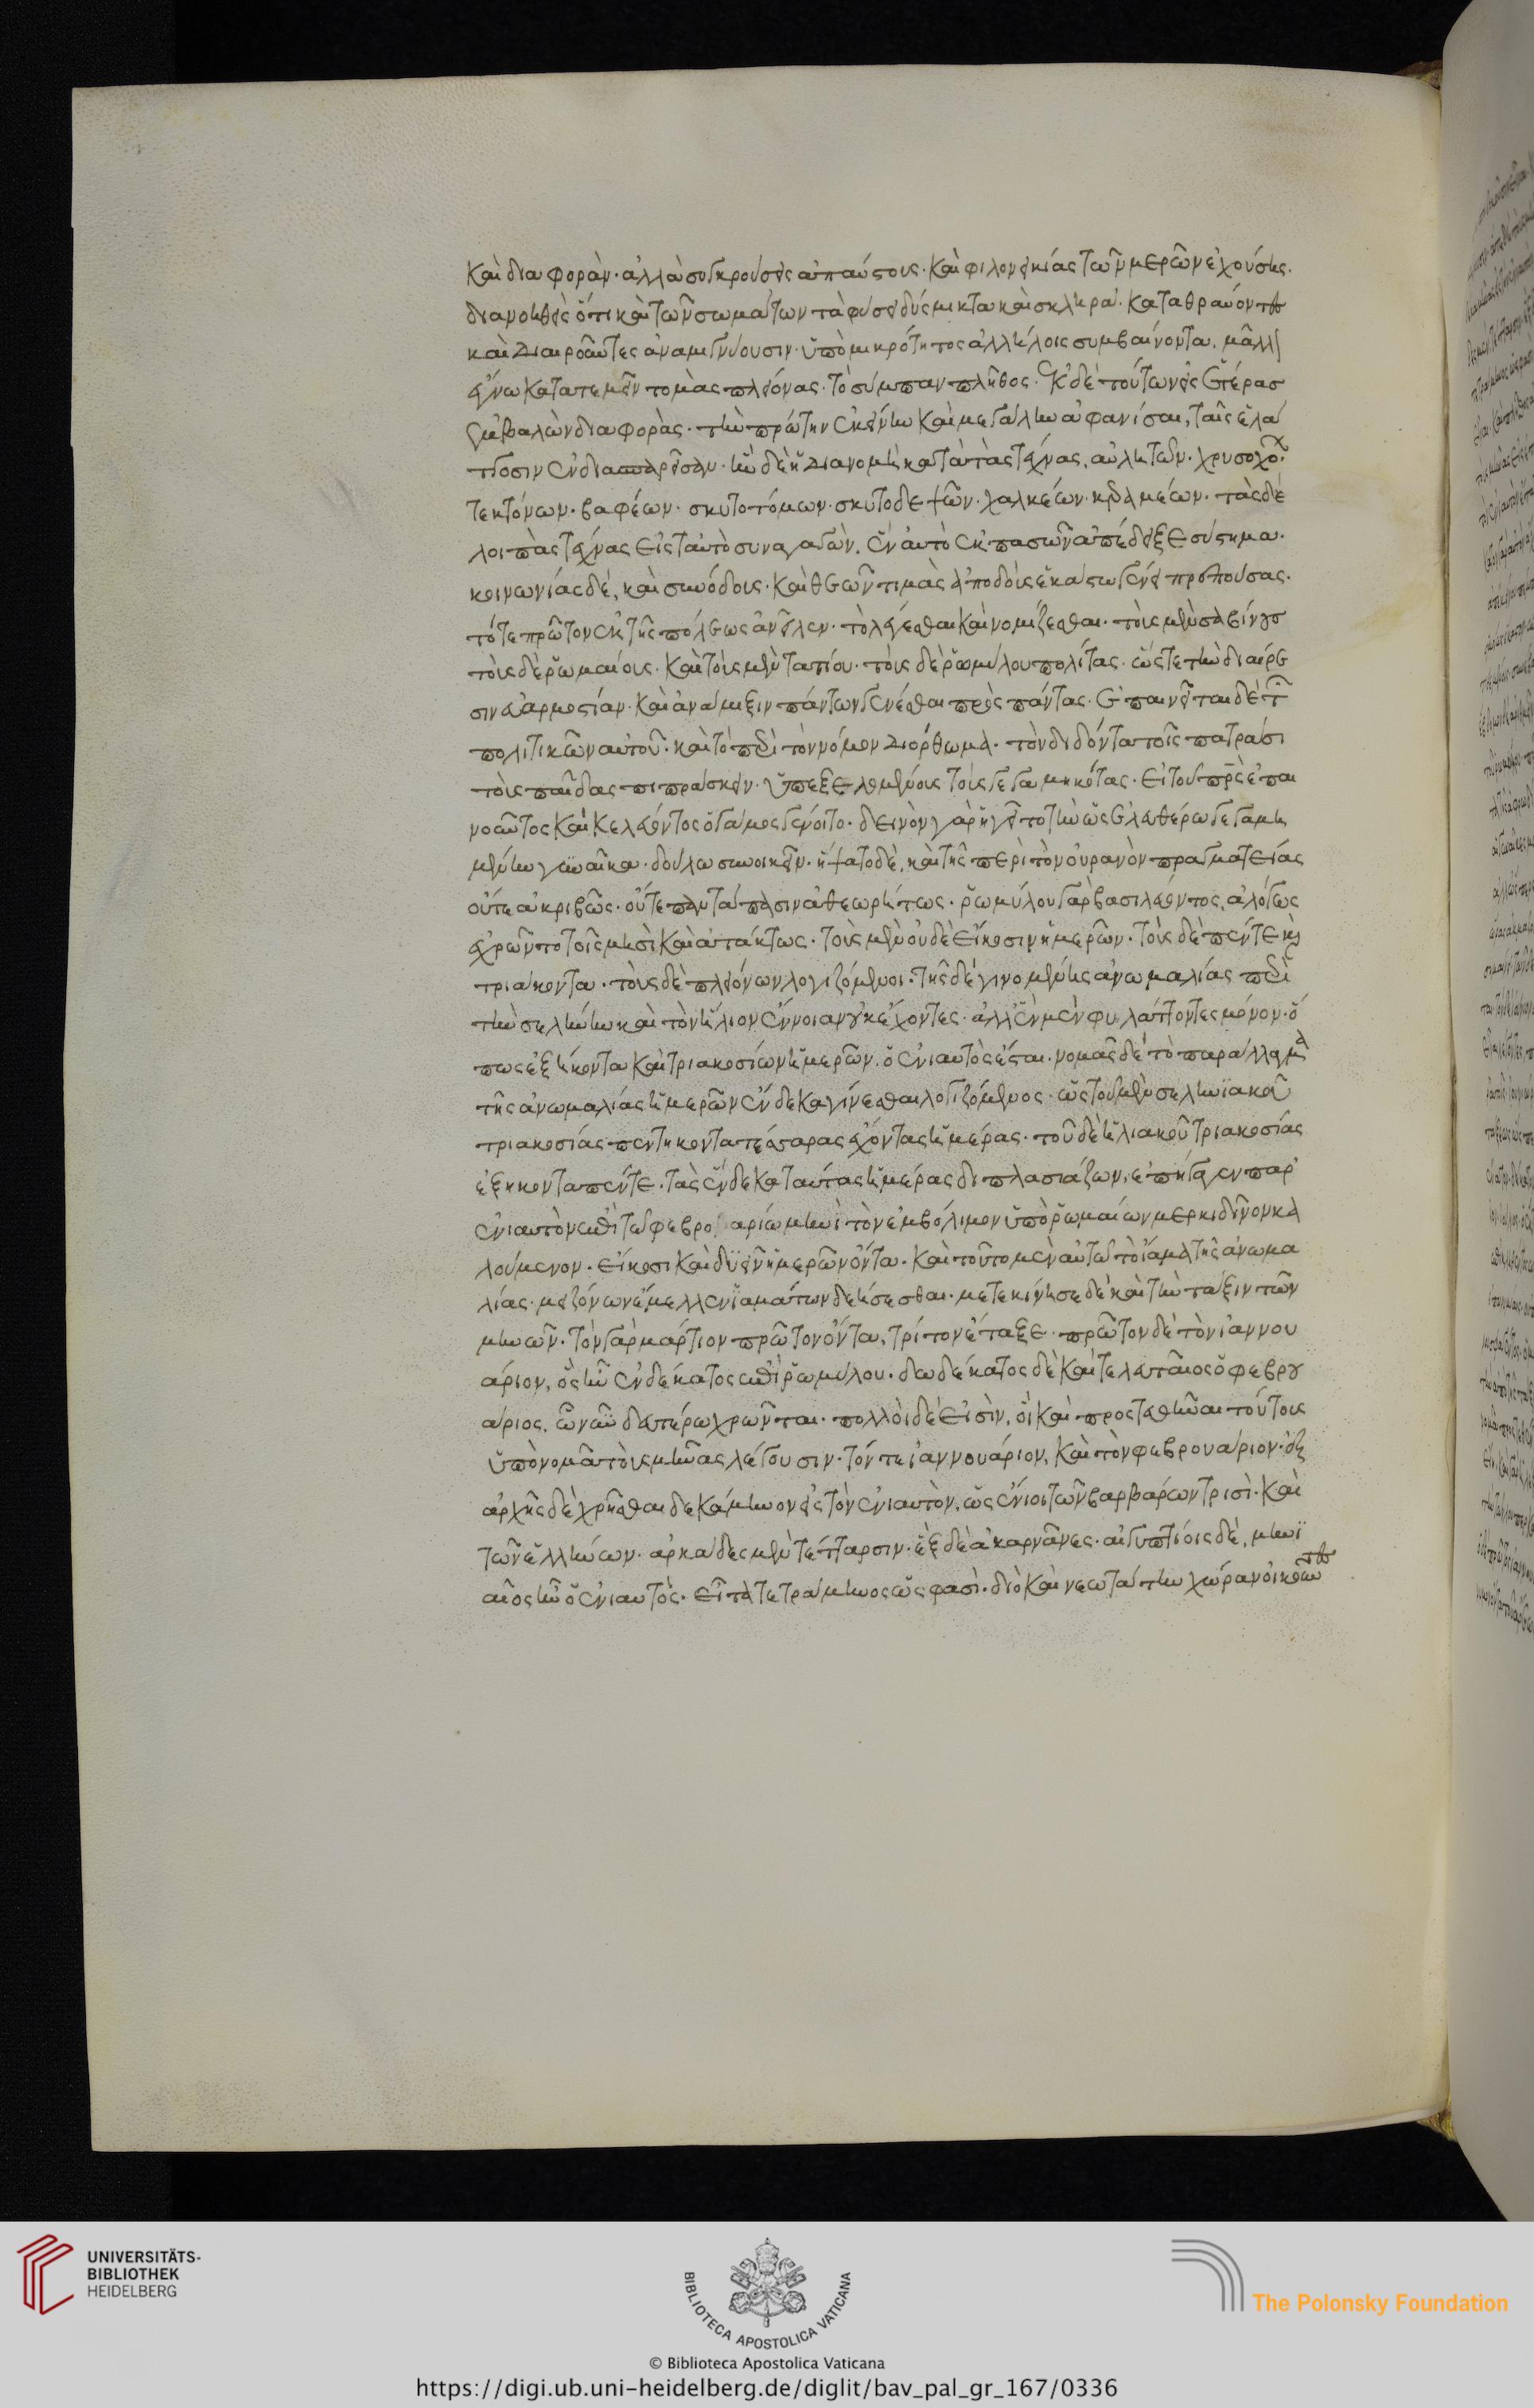 καὶ διαφορὰν· ἀλλὰ συγκρούσεις ἀπαύστους· καὶ φιλονεικίας τῶν μερῶν ἐχούσης.
διανοηθεὶς ὅτι καὶ τῶν σωμάτων τὰ φύσει δύσμικτα καὶ σκληρὰ· καταθραύοντες
καὶ διαιροῦντες ἀναμιγνύουσιν· ὑπὸ μικρότητος ἀλλήλοις συμβαίνοντα. μᾶλλ
ἔγνω κατατεμεῖν τομὰς πλείονας· τὸ σύμπαν πλῆθος· ἐκ δὲ τούτων εἰς ἑτέρας
ἐμβαλὼν διαφορὰς· τὴν πρώτην ἐκείνην καὶ μεγάλην ἀφανίσαι, ταῖς ἐλάτ
τοσιν ἐνδιασπαρεῖσαν· ἦν δὲ ἡ διανομὴ κατὰ τὰς τέχνας, αὐλητῶν· χρυσοχό·
τεκτόνων· βαφέων· σκυτοτόμων· σκυτοδεψῶν· χαλκέων· κεραμέων· τὰς δὲ
λοιπὰς τέχνας εἰς ταὐτὸ συναγαγὼν, ἓν αὐτὸ ἐκ πασῶν ἀπέδειξε σύστημα·
κοινωνίας δὲ, καὶ συνόδοις· καὶ θεῶν τιμὰς ἀποδοὺς ἑκάστω γένει πρεπούσας.
τότε πρῶτον ἐκ τῆς πόλεως ἀνεῖλεν· τὸ λέγεσθαι καὶ νομίζεσθαι· τοὺς μὲν σαβίνους
τοὺς δὲ ῥωμαίους· καὶ τοὺς μὲν τατίου· τοὺς δὲ ῥωμύλου πολίτας· ὥστε τὴν διαίρε
σιν εὐαρμοστίαν· καὶ ἀνάμιξιν πάντων γενέσθαι πρὸς πάντας· ἐπαινεῖται δὲ τῶν
πολιτικῶν αὐτοῦ· καὶ τὸ περὶ τὸν νόμον διόρθωμα· τὸν διδόντα τοῖς πατράσι
τοὺς παῖδας πιπράσκειν· ὑπεξελομένους τοὺς γεγαμηκότας· εἰ τοῦ πρς ἐπαι
νοῦντος καὶ κελεύοντος ὁ γάμος γένοιτο· δεινὸν γὰρ ἡγεῖτο τὴν ὡς ἐλευθέρω γεγαμη
μένην γυναῖκα· δούλω συνοικεῖν· ἥψατο δὲ, καὶ τῆς περὶ τὸν οὐρανὸν πραγματείας
οὔτε ἀκριβῶς· οὔτε παντάπασιν ἀθεωρήτως· ῥωμύλου γὰρ βασιλεύοντος, ἀλόγως
ἐχρῶντο τοῖς μησὶ καὶ ἀτάκτως· τοὺς μὲν οὐδὲ εἴκοσιν ἡμερῶν· τοὺς δὲ πέντε καὶ
τριάκοντα· τοὺς δὲ πλειόνων λογιζόμενοι· τῆς δὲ γινομένης ἀνωμαλίας περὶ
τὴν σελήνην καὶ τὸν ἥλιον ἔννοιαν οὐκ ἔχοντες· ἀλλ' ἓν μὲν φυλάττοντες μόνον· ὅ
πως ἑξήκοντα καὶ τριακοσίων ἡμερῶν, ὁ ἐνιαυτὸς ἔσται· νομᾶς δὲ τὸ παράλλαγμα
τῆς ἀνωμαλίας ἡμερῶν ἕνδεκα γίνεσθαι λογιζόμενος· ὡς τοῦ μὲν σεληνιακοῦ
τριακοσίας πεντηκοντατέσσαρας ἔχοντας ἡμέρας· τοῦ δὲ ἡλιακοῦ τριακοσίας
ἑξηκονταπέντε· τὰς ἕνδεκα ταύτας ἡμέρας διπλασιάζων, ἐπήγαγεν παρ'
ἐνιαυτὸν ἐπὶ τῶ φεβρο αρίω μηνὶ τὸν ἐμβόλιμον ὑπὸ ῥωμαίων μερκιδῖνον κα
λούμενον· εἴκοσι καὶ δυεῖν ἡμερῶν ὄντα· καὶ τοῦτο μὲν αὐτῶ τὸ ἴαμα τῆς ἀνωμα
λίας· μειζόνων ἔμελλεν ἰαμάτων δεήσεσθαι· μετεκίνησε δὲ καὶ τὴν τάξιν τῶν
μηνῶν· τὸν γὰρ μάρτιον πρῶτον ὄντα, τρίτον ἔταξε· πρῶτον δὲ τὸν ἰαννου
άριον, ὃς ἦν ἑνδέκατος ἐπὶ ῥωμύλου· δωδέκατος δὲ καὶ τελευταῖος ὁ φεβρου
άριος, ὧ νῦν δευτέρω χρῶνται· πολλοὶ δὲ εἰσὶν, οἳ καὶ προστεθῆναι τούτους
ὑπὸ νομᾶ τοὺς μῆνας λέγουσιν· τόν τε ἰαννουάριον, καὶ τὸν φεβρουάριον· ἐξ
ἀρχῆς δὲ χρῆσθαι δεκάμηνον εἰς τὸν ἐνιαυτὸν, ὡς ἔνιοι τῶν βαρβάρων τρισὶ· καὶ
τῶν ἑλλήνων· ἀρκάδες μὲν τέτταρσιν· ἓξ δὲ ἀκαρνᾶνες· αἰγυπτίοις δὲ, μηνι
αῖος ἦν ὁ ἐνιαυτὸς· εἶτα τετράμηνος ὥς φασὶ· διὸ καὶ νεωτάτην χώραν οἰκοῦντες
UNIVERSITÄTS-
BIBLIOTHEK
HEIDELBERG
BIBLIOTECA APOSTOLICA VATICANA
The Polonsky Foundation
© Biblioteca Apostolica Vaticana
https://digi.ub.uni-heidelberg.de/diglit/bav_pal_gr_167/0336